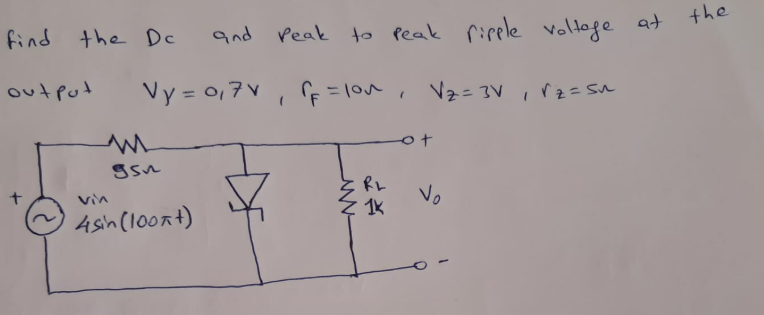 find the Dc and Peak to Peak ripple voltage at the
output Vγ = 0,7V , rF = 10Ω , VZ = 3V , rZ = 5Ω
95Ω
+
Vin
4sin(100πt)
RL
1K
+
Vo
-